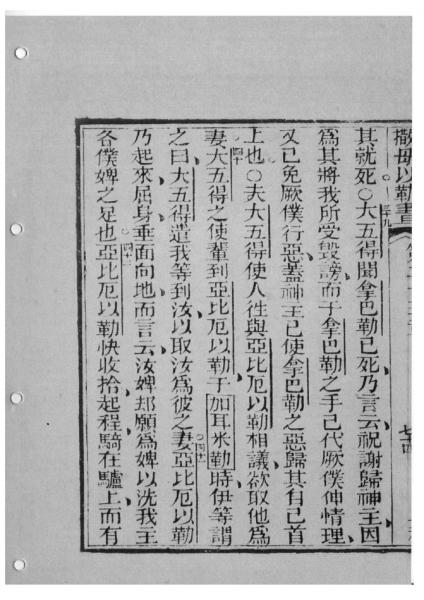 撒毋以勒書
三十九
其就死○大五得聞拿巴勒已死乃言云祝謝歸神主因
爲其將我所受毀謗而于拿巴勒之手已代厥僕伸情理
又已免厥僕行惡蓋神主已使拿巴勒之惡歸其有己首
上也○夫大五得使人徃與亞比厄以勒相議欲取他爲
四十
妻大五得之使輩到亞比厄以勒于加耳米勒時伊等謂
之曰大五得遣我等到汝以取汝爲彼之妻亞比厄以勒
四一
乃起來屈身垂面向地而言云汝婢却願爲婢以洗我主
各僕婢之足也亞比厄以勒快收拾起程騎在驢上而有
四十